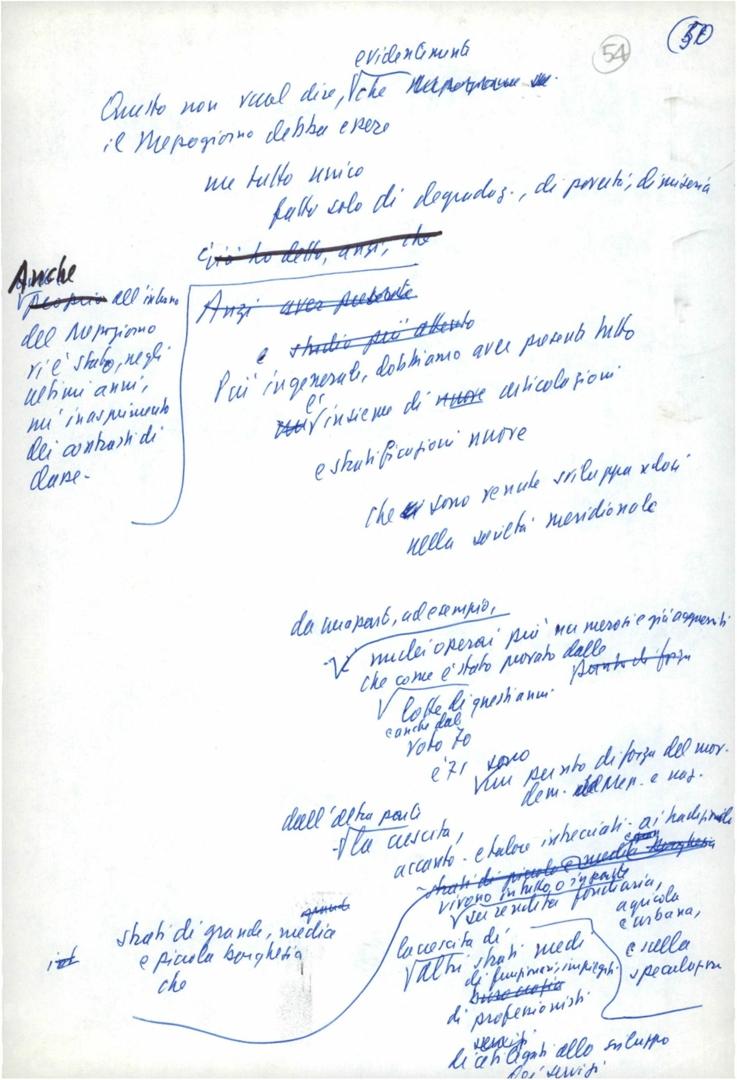 54
50
evidentemente
Questo non vuol dire, che
il Mezzogiorno debba essere
un tutto unico
fatto solo di degradaz., di povertà, di miseria
Già ho detto, anzi, che
Anche
Proprio all'interno
del Mezzogiorno
vi è stato, negli
ultimi anni,
un inasprimento
dei contrasti di
classe.
Anzi aver presente
e studio più attento
Più in generale, dobbiamo aver presenti tutto
l'insieme di nuove articolazioni
e stratificazioni nuove
che si sono venute sviluppandosi
nella società meridionale
da una parte, ad esempio,
nuclei operai più numerosi e già agguerriti
che come è stato provato dalle
punto di forza
lotte di questi anni
e anche dal
voto 70
e 71 sono
un punto di forza del mov.
dem. del Mer. e naz.
dall'altra parte
la crescita,
accanto e talora intrecciati ai tradizionali
strati di piccola e media borghesia
vivono in tutto o in parte
su rendita fondiaria,
agricola
e urbana,
e sulla
speculazione
strati di grande, media
e piccola borghesia
che
la crescita di
altri strati medi
di funzionari, impiegati
burocrazia
di professionisti
servizi
di ceti legati allo sviluppo
dei servizi